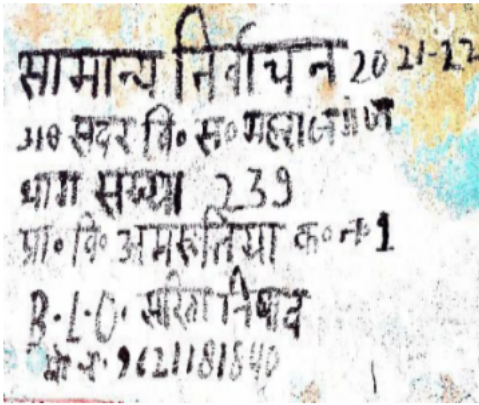 सामान्य निर्वाचन 2021-22
318 सदर वि० स० महराजगंज
भाग संख्या 239
प्रा० वि० अमरूतिया क० न० 1
B.L.O. सरिता निषाद
मो नं. 9621181840